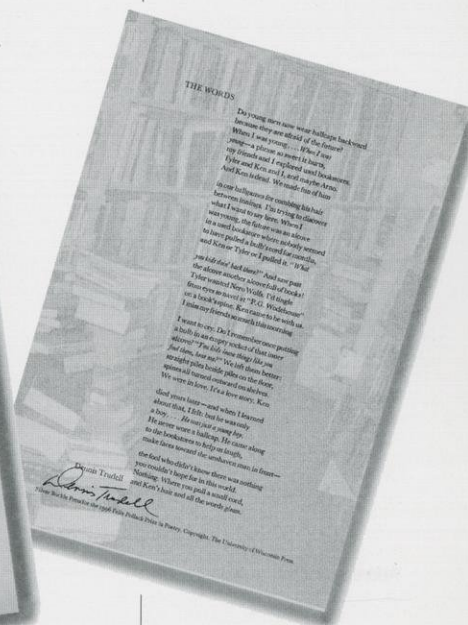 THE WORDS
Do young men now wear ballcaps backward
because they are afraid of the future?
When I was young. . . . When I was
young—a phrase so sweet it hurts,
my friends and I explored used bookstores,
Tyler and Ken and I, and maybe Arno.
And Ken is dead. We made fun of him
in our ballgames for combing his hair
between innings. I'm trying to discover
what I want to say here. When I
was young, the future was an alcove
in a used bookstore where nobody seemed
to have pulled a bulb's cord for months,
and Ken or Tyler or I pulled it. "What
you kids doin' back there?" And saw past
the alcove another alcove full of books!
Tyler wanted Nero Wolfe. I'd tingle
from eyes to navel at "P.G. Wodehouse"
on a book's spine. Ken came to be with us.
I miss my friends so much this morning
I want to cry. Do I remember once putting
a bulb in an empty socket of that inner
alcove? "You kids leave things like you
find them, hear me?" We left them better:
straight piles beside piles on the floor,
spines all turned outward on shelves.
We were in love. It's a love story. Ken
died years later—and when I learned
about that, I felt: but he was only
a boy. . . . He was just a young boy.
He never wore a ballcap. He came along
to the bookstores to help us laugh,
make faces toward the unshaven men in front—
the fool who didn't know there was nothing
you couldn't hope for in this world.
Nothing. Where you pull a small cord,
and Ken's hair and all the words gleam.
Dennis Trudell
Dennis Trudell
Prize in Poetry. Copyright, The University of Wisconsin Press